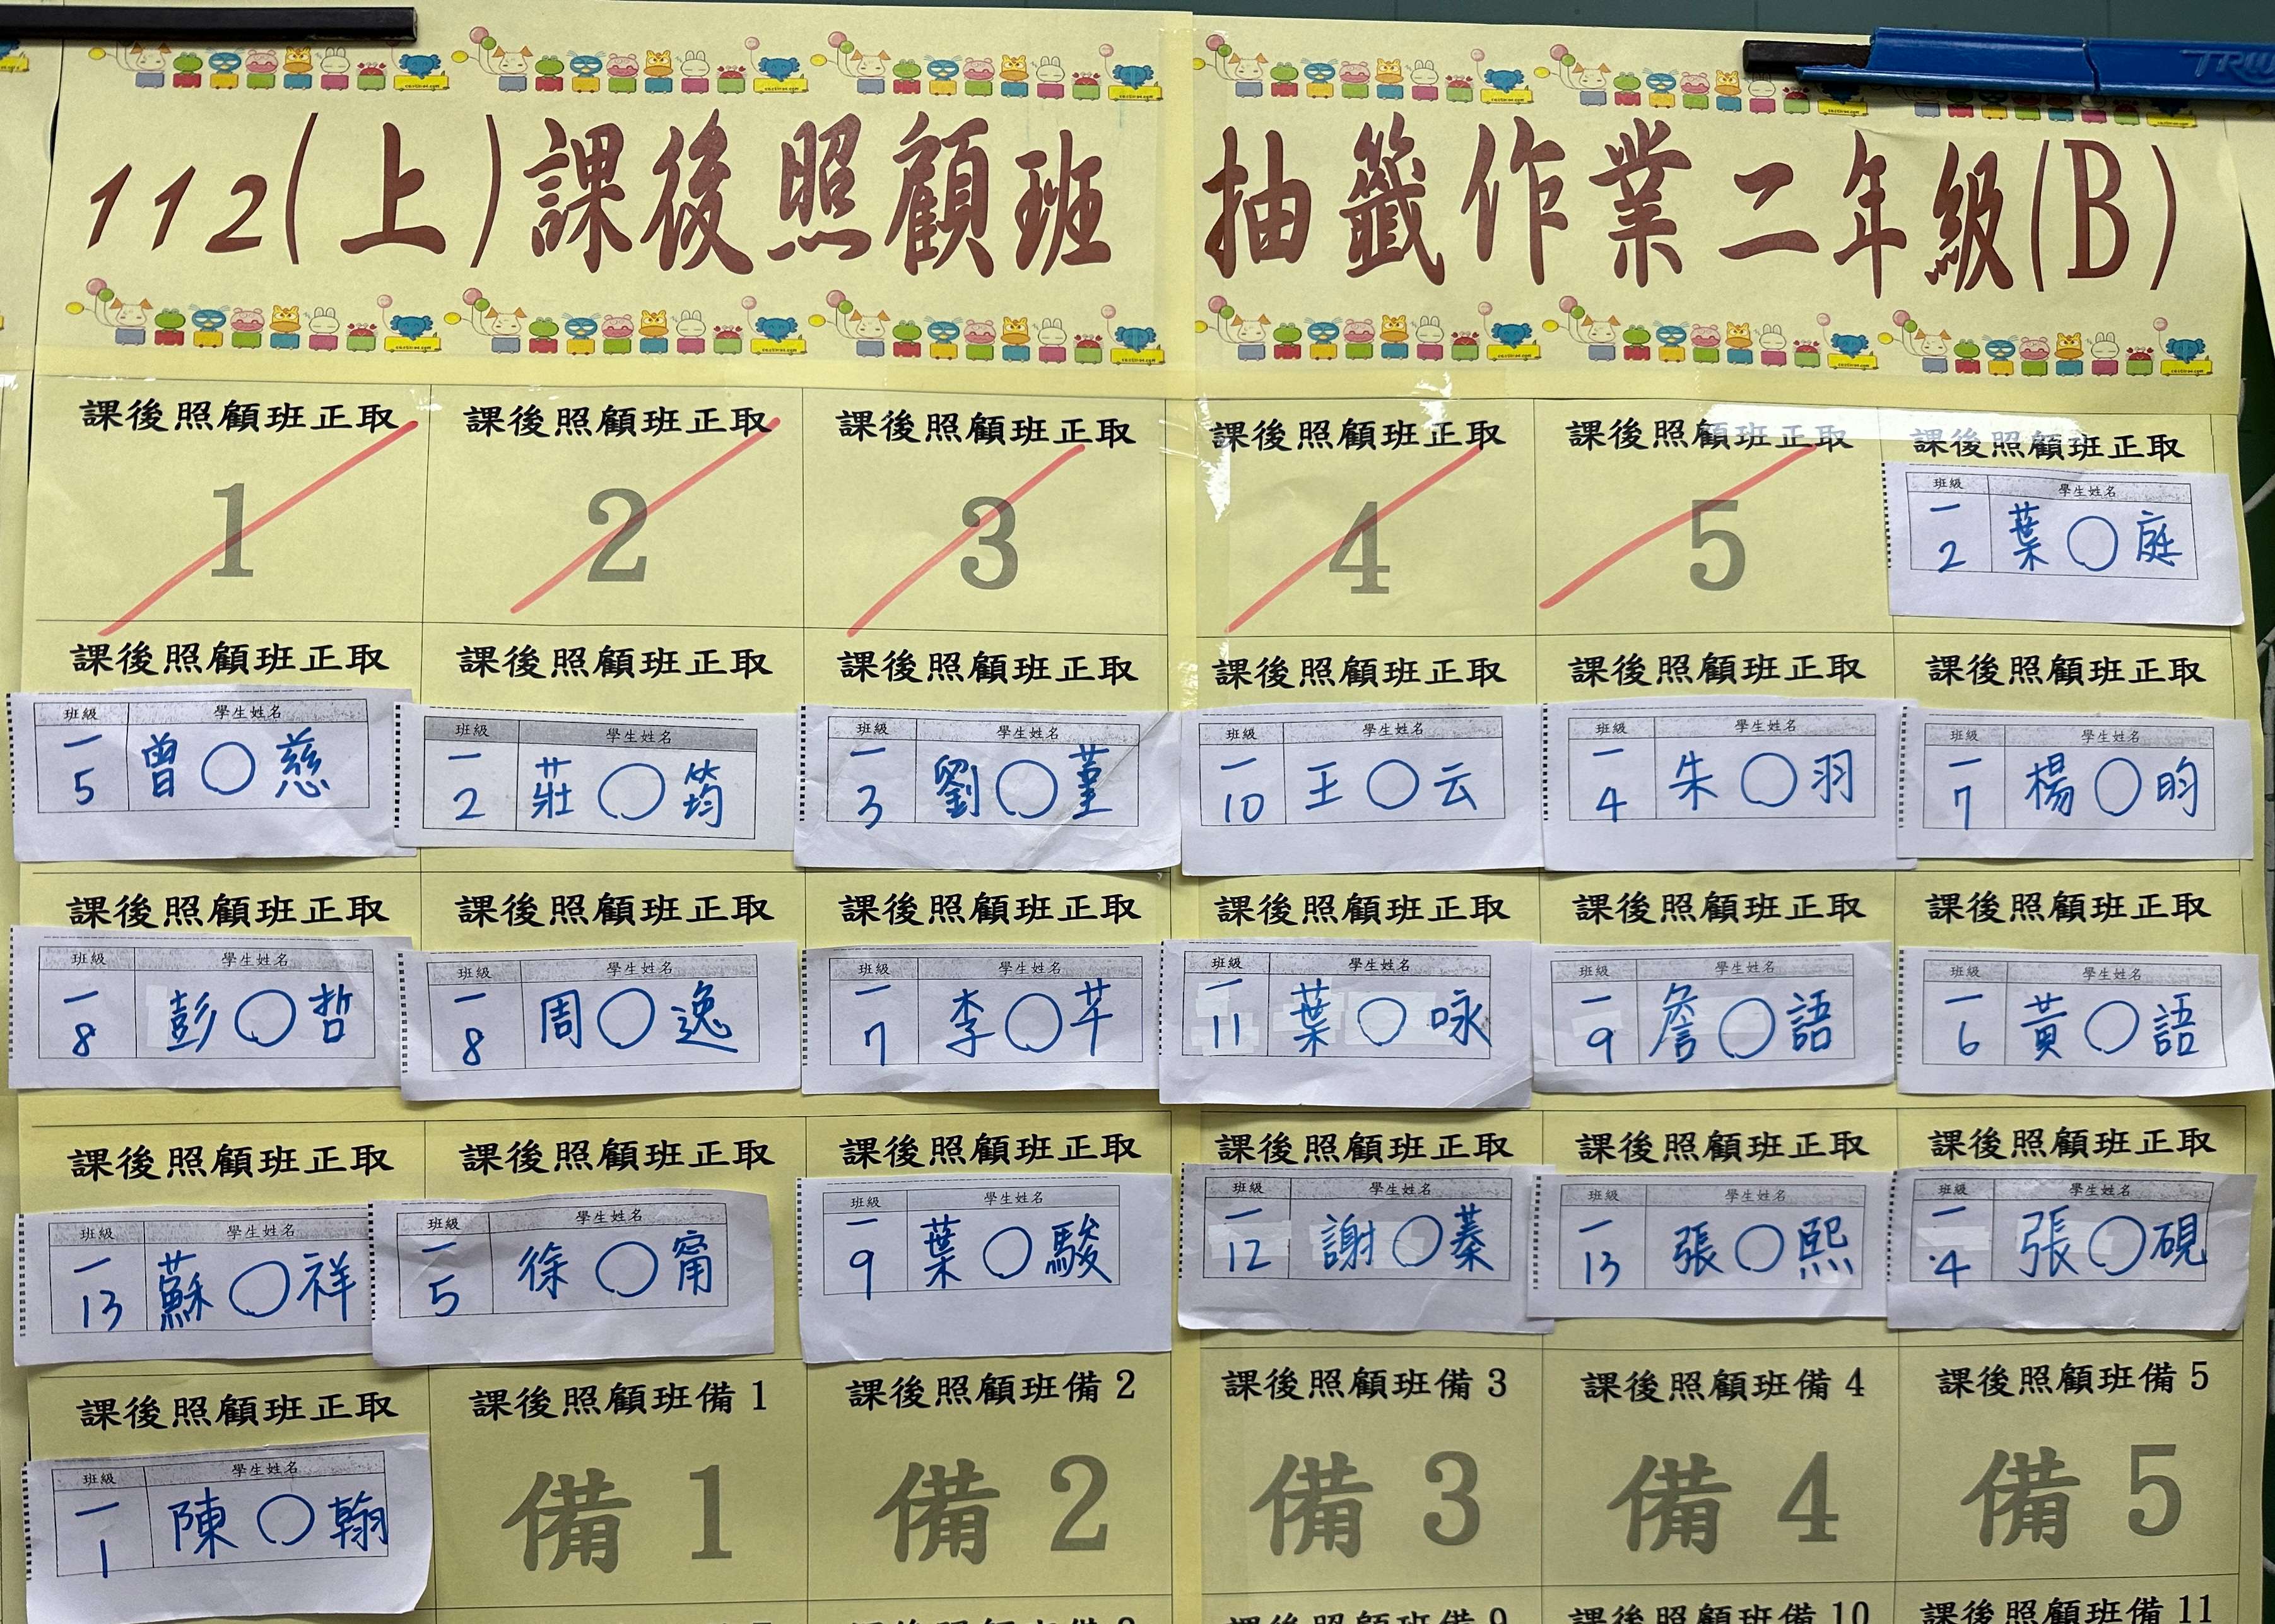 TRIW
112(上)課後照顧班 抽籤作業二年級(B)
課後照顧班正取 課後照顧班正取 課後照顧班正取 課後照顧班正取 課後照顧班正取 課後照顧班正取
1 2 3 4 5
班級 學生姓名
一 2 葉○庭
課後照顧班正取 課後照顧班正取 課後照顧班正取 課後照顧班正取 課後照顧班正取 課後照顧班正取
班級 學生姓名 班級 學生姓名 班級 學生姓名 班級 學生姓名 班級 學生姓名 班級 學生姓名
一 5 曾○慈 一 2 莊○筠 一 3 劉○菫 一 10 王○云 一 4 朱○羽 一 7 楊○昀
課後照顧班正取 課後照顧班正取 課後照顧班正取 課後照顧班正取 課後照顧班正取 課後照顧班正取
班級 學生姓名 班級 學生姓名 班級 學生姓名 班級 學生姓名 班級 學生姓名 班級 學生姓名
一 8 彭○哲 一 8 周○逸 一 7 李○芊 一 11 葉○咏 一 9 詹○語 一 6 黃○語
課後照顧班正取 課後照顧班正取 課後照顧班正取 課後照顧班正取 課後照顧班正取 課後照顧班正取
班級 學生姓名 班級 學生姓名 班級 學生姓名 班級 學生姓名 班級 學生姓名 班級 學生姓名
一 13 蘇○祥 一 5 徐○甯 一 9 葉○駿 一 12 謝○蓁 一 13 張○熙 一 4 張○硯
課後照顧班正取 課後照顧班備1 課後照顧班備2 課後照顧班備3 課後照顧班備4 課後照顧班備5
班級 學生姓名
一 1 陳○翰 備1 備2 備3 備4 備5
課後照顧班備9 課後照顧班備10 課後照顧班備11